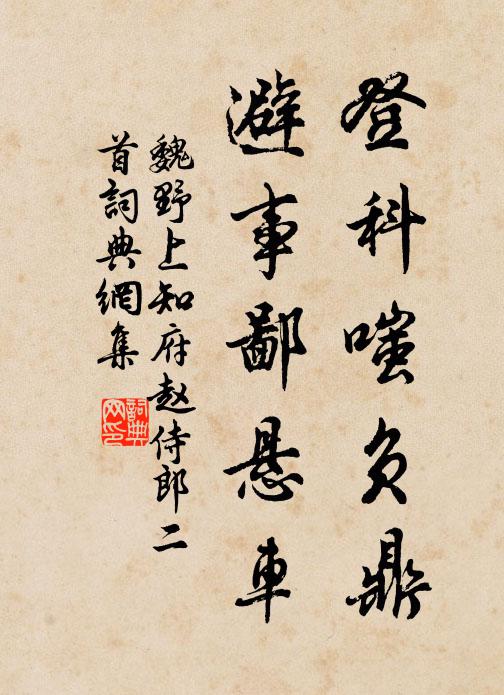 登科嗤负鼎
避事鄙悬車
魏野上知府赵侍郎二
首詞典網集
詞典
网印